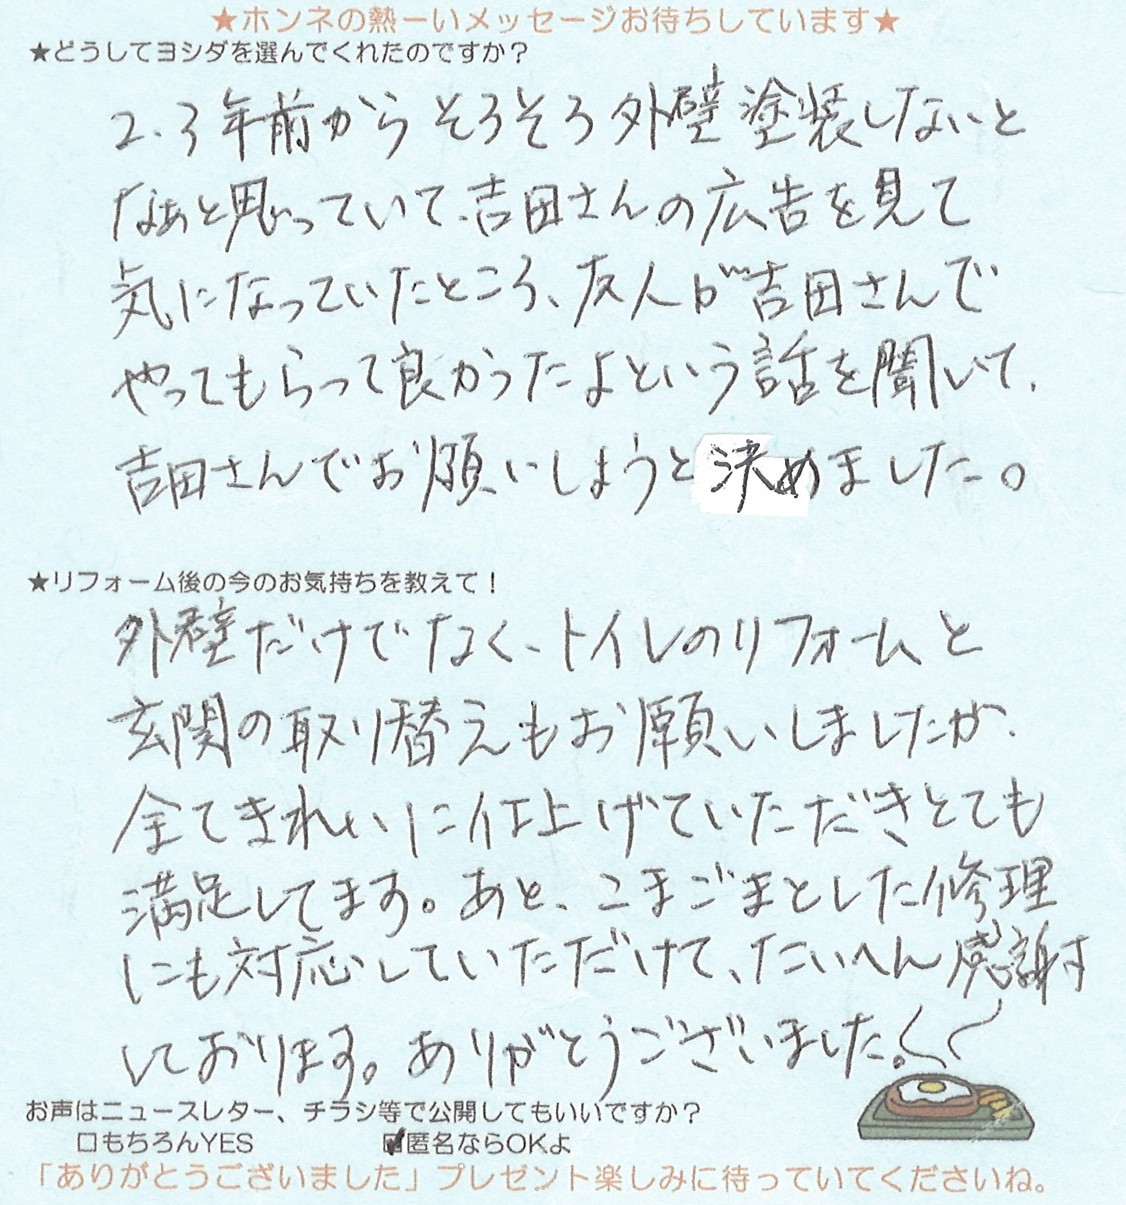 ★ホンネの熱ーいメッセージお待ちしています★
★どうしてヨシダを選んでくれたのですか？
2.3年前からそろそろ外壁塗装しないと
なぁと思っていて、吉田さんの広告を見て
気になっていたところ、友人が吉田さんで
やってもらって良かったよという話を聞いて、
吉田さんでお願いしようと決めました。
★リフォーム後の今のお気持ちを教えて！
外壁だけでなく、トイレのリフォームと
玄関の取り替えもお願いしましたが、
全てきれいに仕上げていただきとても
満足してます。あと、こまごまとした修理
にも対応していただけて、たいへん感謝
しております。ありがとうございました。
お声はニュースレター、チラシ等で公開してもいいですか？
□もちろんYES ☑匿名ならOKよ
「ありがとうございました」プレゼント楽しみに待っていてくださいね。